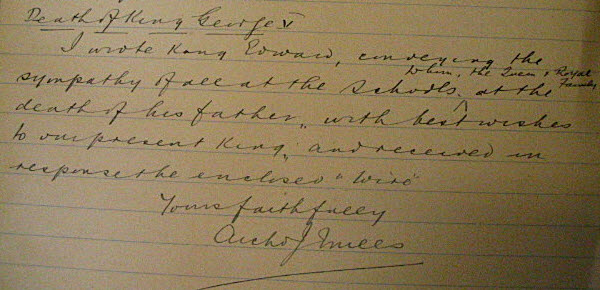 Death of King George V
I wrote King Edward, conveying the
sympathy of all at the Schools, ^ to him, the Queen & Royal Family at the
death of his father, with best wishes
to our present King, and received in
response the enclosed "Wire"
Yours faithfully
Archd J